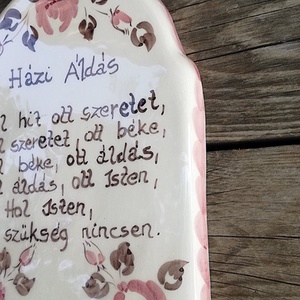 Házi Áldás
hit ott szeretet,
szeretet, ott béke,
béke, ott áldás,
áldás, ott Isten,
Hol Isten,
szükség nincsen.